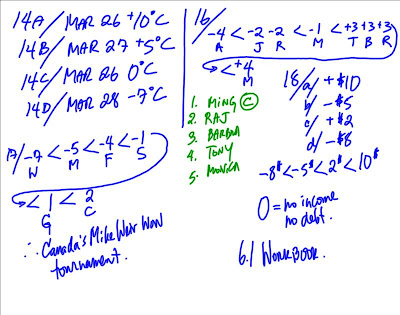 14A/ MAR 26 +10°C
14B/ MAR 27 +5°C
14C/ MAR 26 0°C
14D/ MAR 28 -7°C
17/ -7 < -5 < -4 < -1
W M F S
< 1 < 2
G C
∴ Canada's Mike Weir Won
tournament.
16/
-4 < -2 -2 < -1 < +3 +3 +3
A J R M T B R
< +4
M
1. MING C
2. RAJ
3. BARBRA
4. TONY
5. MONICA
18/a/ + $10
b/ - $5
c/ + $2
d/ - $8
-8$ < -5$ < 2$ < 10$
0 = no income
no debt.
6.1 WORKBOOK.